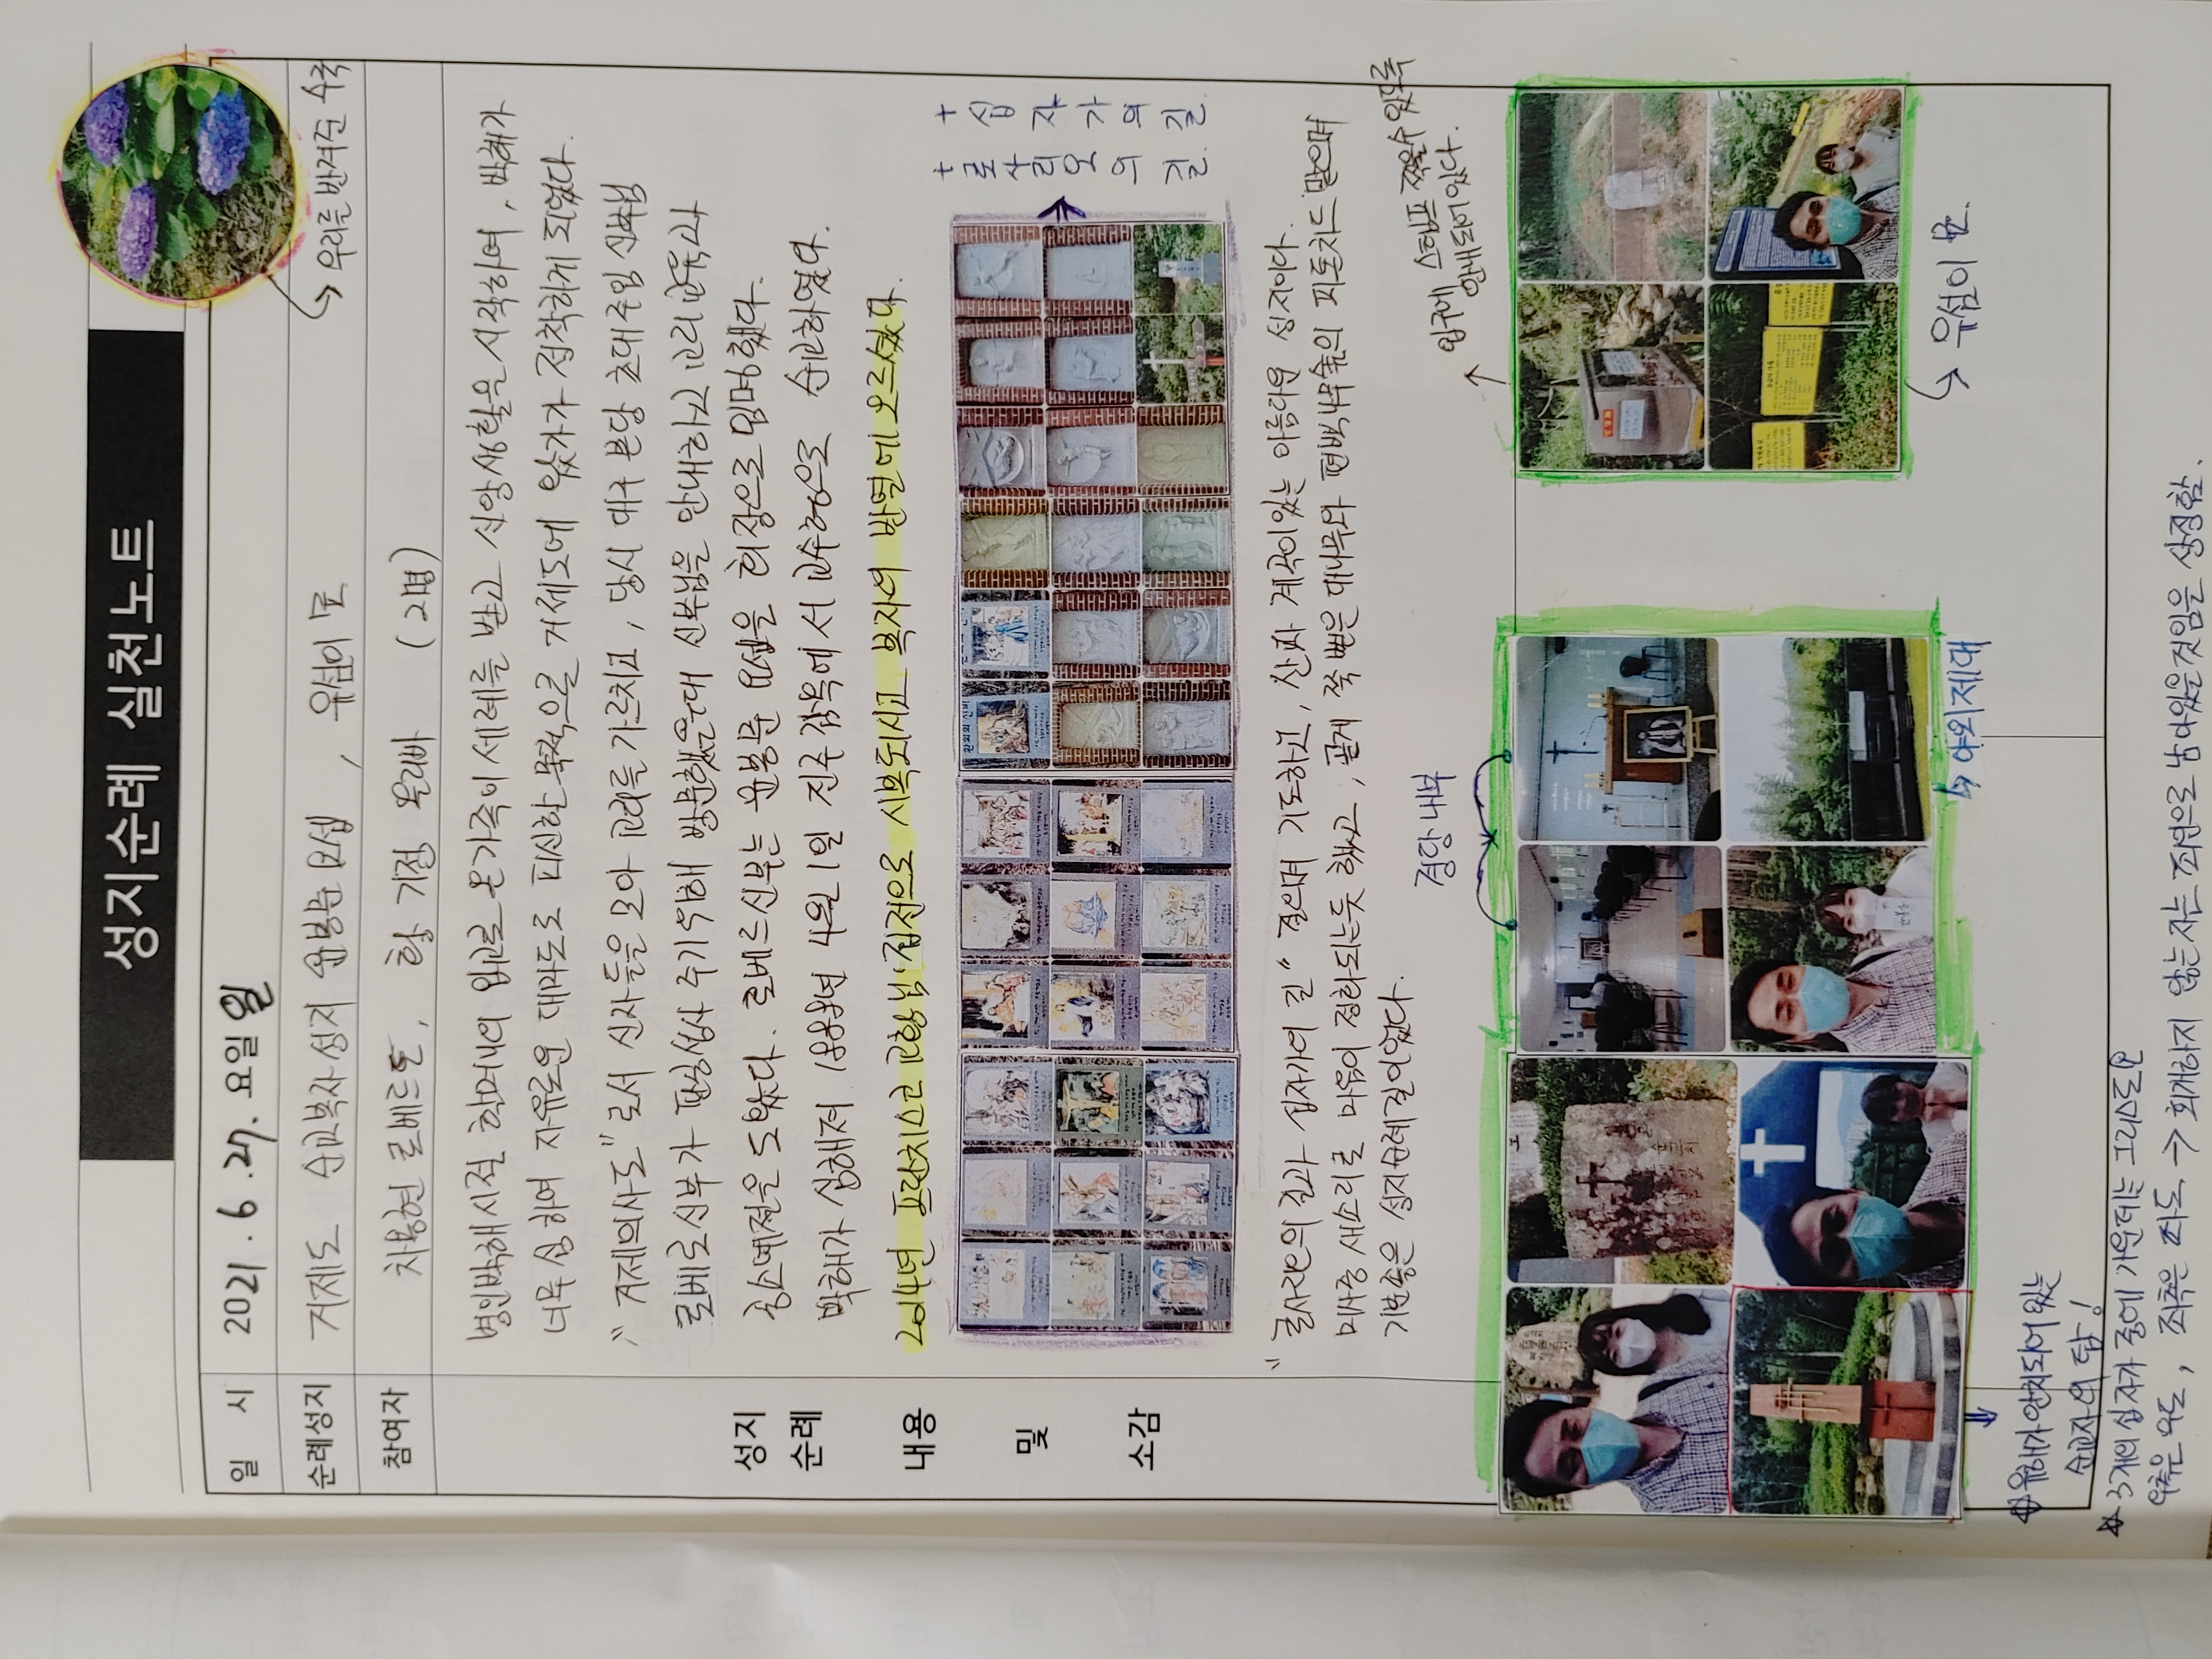 성지순례 실천노트
일 시 2021. 6. 27. 요일 일
우리를 반겨준 수국
순례성지 거제도 순교복자성지 윤봉문 요셉, 유섬이 묘
참여자 차용현 로베르토, 황기정 올리바 (2명)
성지 순례 내용 및 소감
병인박해시절 할머니의 입교로 온가족이 세례를 받고 신앙생활을 시작하여, 박해가
너무 심하여 자유로운 대마도로 피신할 목적으로 거제도에 왔가가 정착하게 되었다.
"거제의사도"로서 신자들을 모아 교리를 가르치고, 당시 대구 본당 초대주임 신부님
로베로신부가 판공성사 주기위해 방문했을대 신부님을 안내하고 교리교육과
공소예절을 도왔다. 로베르신부는 윤봉문 요셉을 회장으로 임명했다.
박해가 심해져 1888년 4월 1일 진주감옥에서 교수형으로 순교하였다.
2014년 프란치스코 교황님 집전으로 시복되시고 복자의 반열에 오르셨다.
환희의 신비
+ 로사리오의 길
+ 십자가의 길
"로사리오의 길과 십자가의 길" 걸으며 기도하고, 산과 계곡이있는 아름다운 성지이다.
미사중 새소리로 마음이 정화되는듯 했고, 곧게 쭉 뻗은 대나무와 편백나무숲의 피톤치드 맡으며
기분좋은 성지순례길이었다.
입구에 스탬프 찍을수 있도록
안내되어 있다.
경당 내부
야외제대
유섬이 묘.
유해가 안치되어 있는
순교자의 탑!
3개의 십자가 중에 가운데는 그리스도요
우측은 우도, 좌측은 좌도 → 회개하지 않는자는 죄인으로 남아있을것임을 상징함.